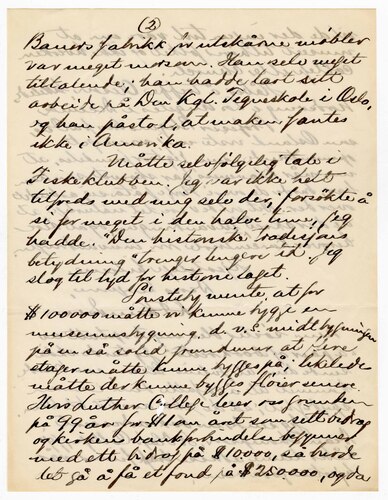 (2)
Bauers fabrikk for utskårne møbler
var meget morsom. Han selv meget
tiltalende; han hadde lært sitt
arbeide på Den Kgl. Tegneskole i Oslo,
og han påstod, at maken fantes
ikke i Amerika.
Måtte selvfølgelig tale i
Fiskeklubben. Jeg var ikke helt
tilfreds med mig selv der; forsøkte å
si for meget i den halve time, jeg
hadde. "Den historiske tradisjons
betydning" trenger lengere tid. Jeg
slog til lyd for historielaget.
mente, at for
$100000 måtte vi kunne bygge en
museumsbygning. d. v. s. midtbygningen
på en så solid grundmur, at flere
etager måtte kunne bygges på, likeledes
måtte der kunne bygges fløier senere
Hvis Luther College leier oss grunnen
på 99 år for $1 om året som sitt bidrag
og kirkens begynner
med ett bidrag på $10,000, så burde
det gå å få et fond på $250000, og da